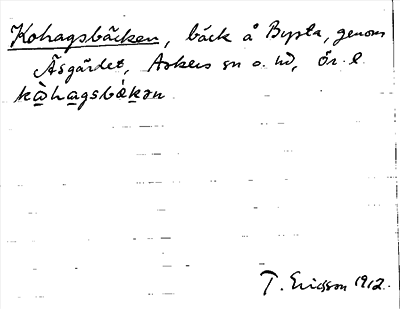 Kohagsbäcken, bäck å Bysta, genom
Åsgärdet, Askers sn o. hd, Ör. l.
kὼhagsbὲkən
T. Ericsson 1912.